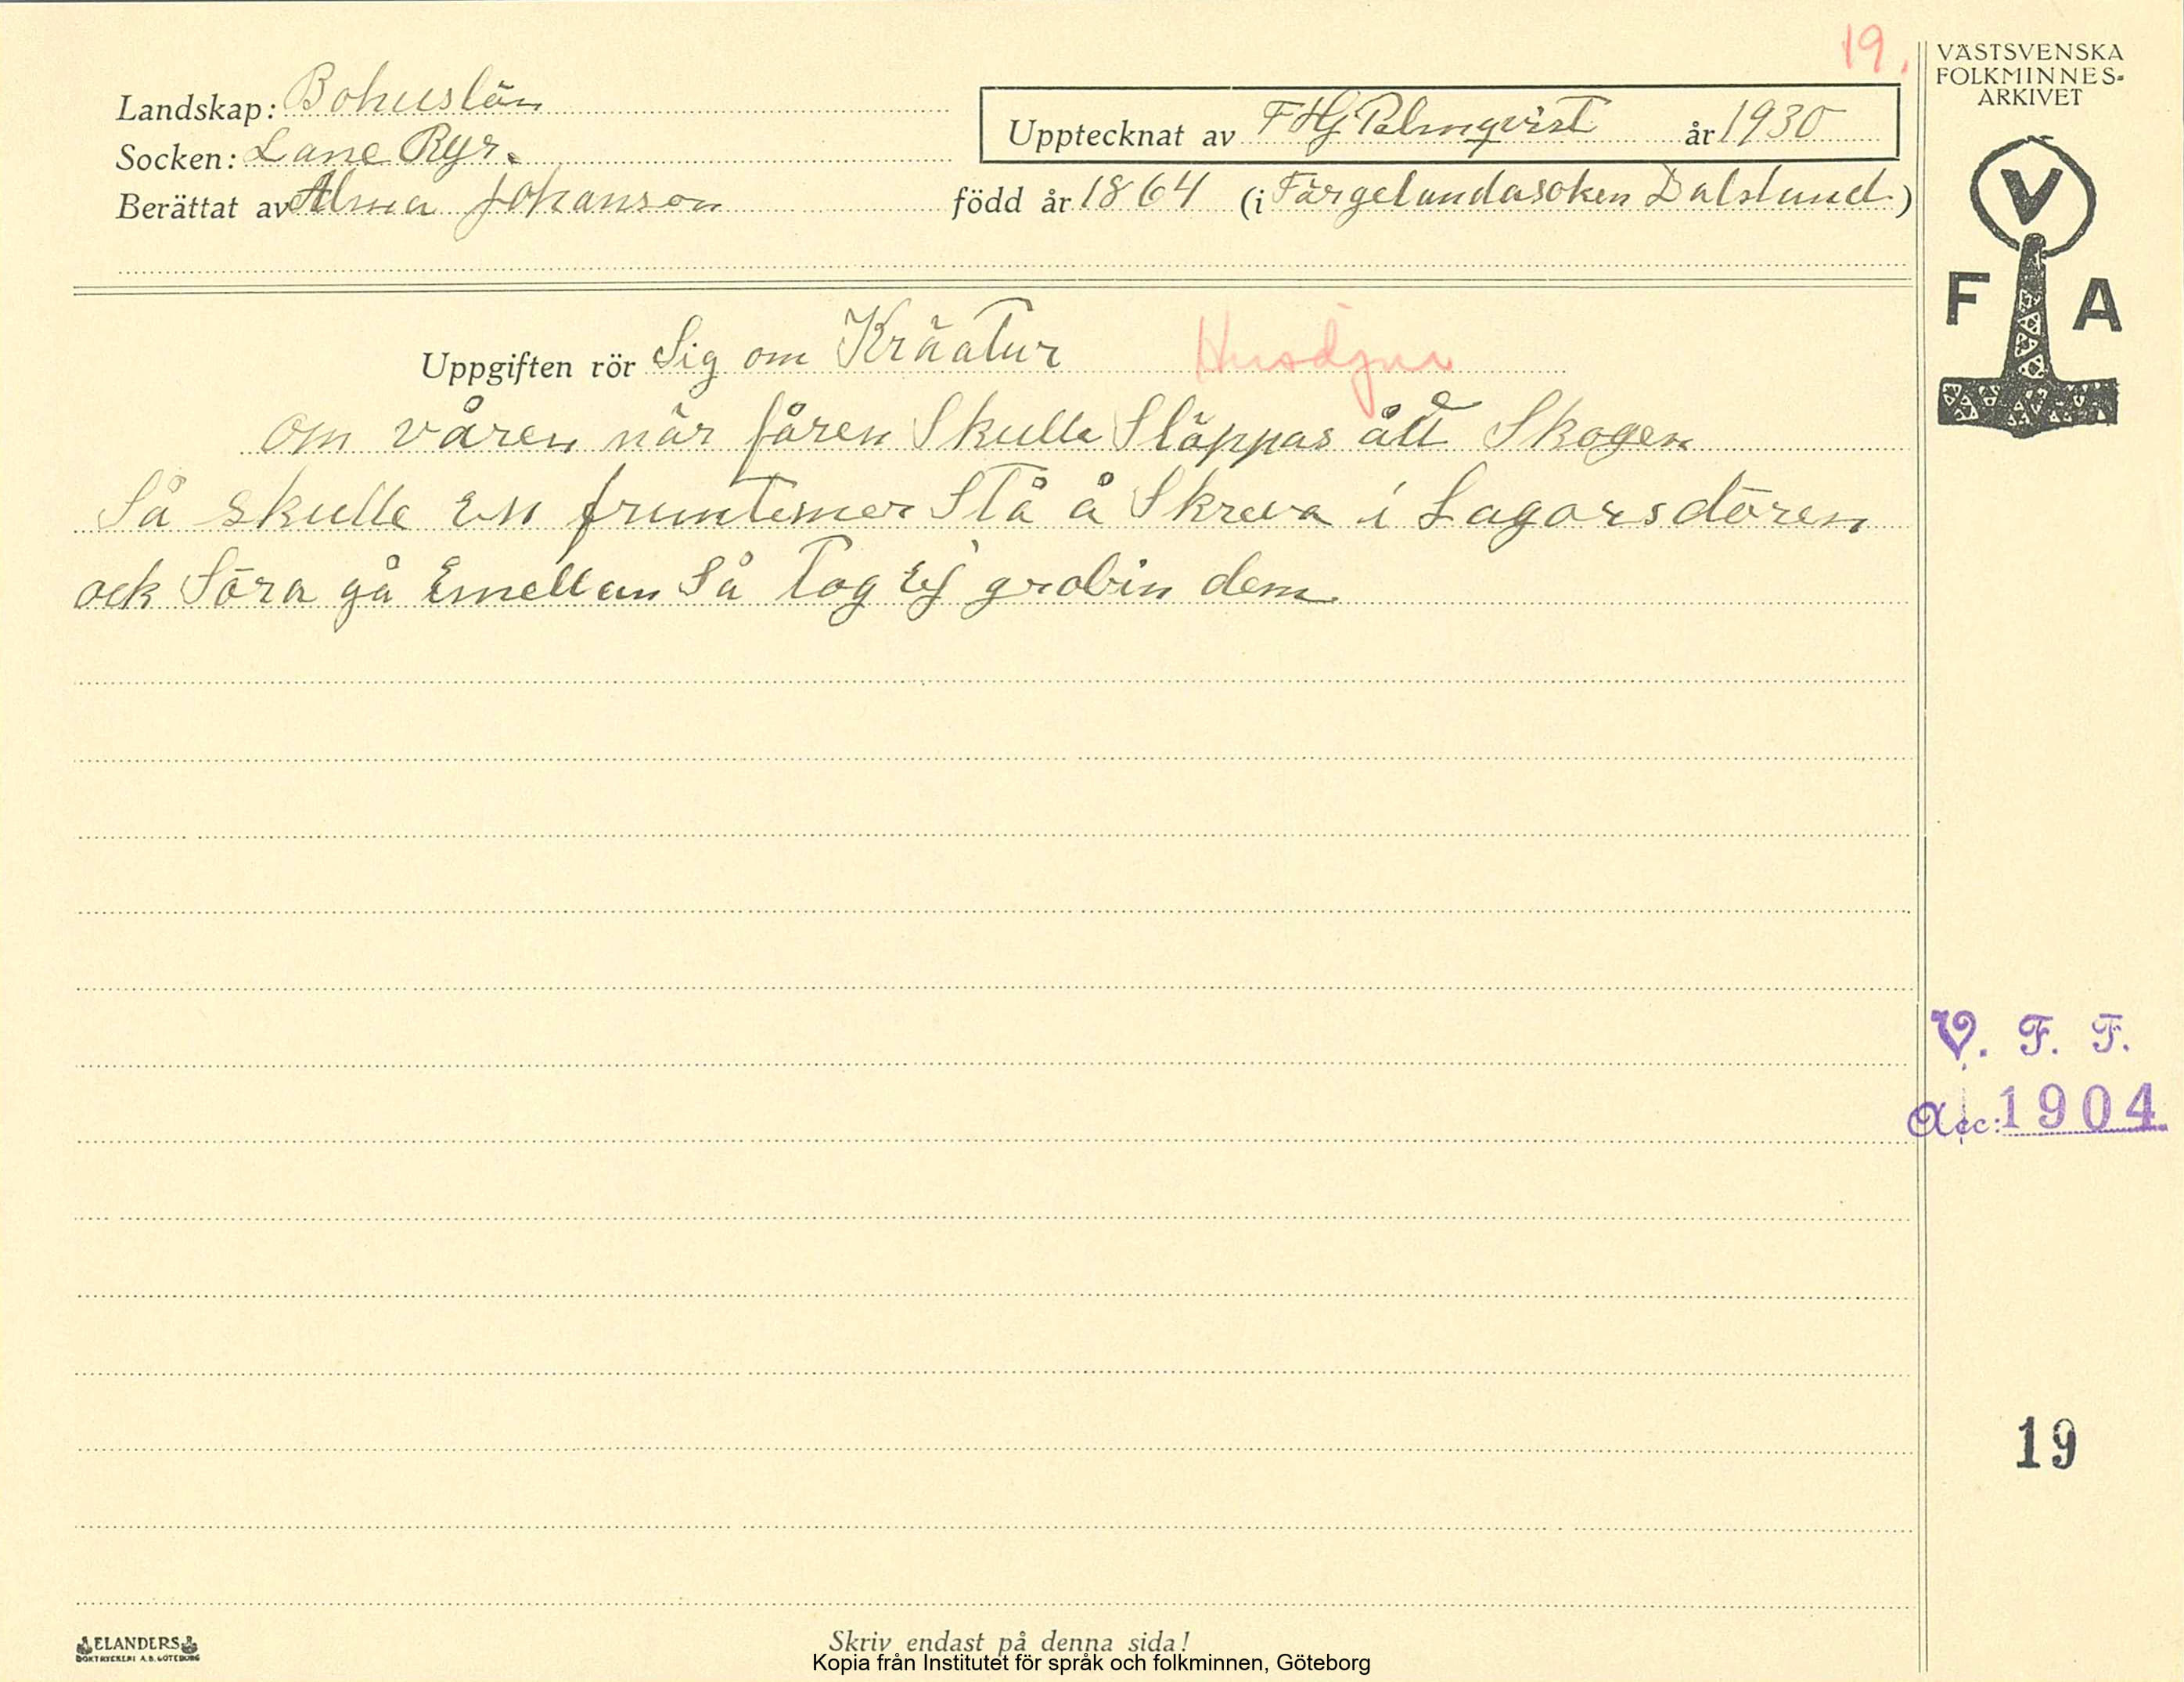 19.
VÄSTSVENSKA
FOLKMINNES-
ARKIVET
Landskap: Bohuslän
Upptecknat av F Hj Palmqvist år 1930
Socken: Lane Ryr.
Berättat av Alma Johanson född år 1864 (i Färgelandasoken Dalsland)
V
F A
Uppgiften rör Sig om Kräatur Husdjur
om våren när fåren Skulle Släppas ått Skogen
Så skulle En fruntemer Stå å Skreva i Lagorsdören
ock Såra gå Emellan Så Tog Ej grobin dem
V. F. F.
Acc: 1904
19
ELANDERS
BOKTRYCKERI A.B. GÖTEBORG
Skriv endast på denna sida!
Kopia från Institutet för språk och folkminnen, Göteborg